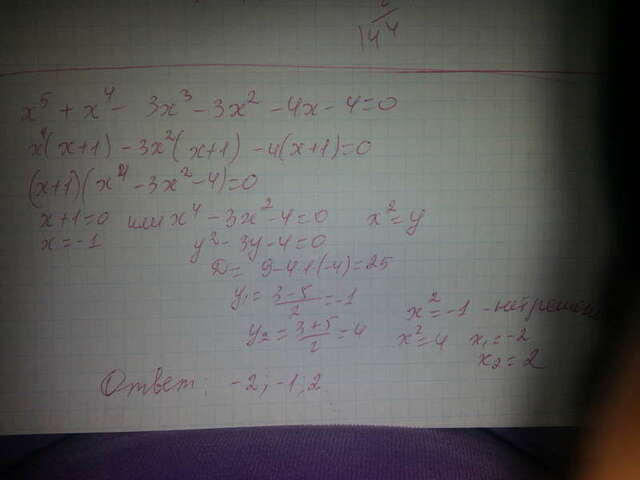 144
x⁵ + x⁴ - 3x³ - 3x² - 4x - 4 = 0
x⁴(x+1) - 3x²(x+1) - 4(x+1) = 0
(x+1)(x⁴ - 3x² - 4) = 0
x+1=0 или x⁴ - 3x² - 4 = 0 x² = y
x = -1 y² - 3y - 4 = 0
D = 9 - 4·1·(-4) = 25
y₁ = (3-5)/2 = -1 x² = -1 - нет решен
y₂ = (3+5)/2 = 4 x² = 4 x₁ = -2
x₂ = 2
Ответ: -2; -1; 2